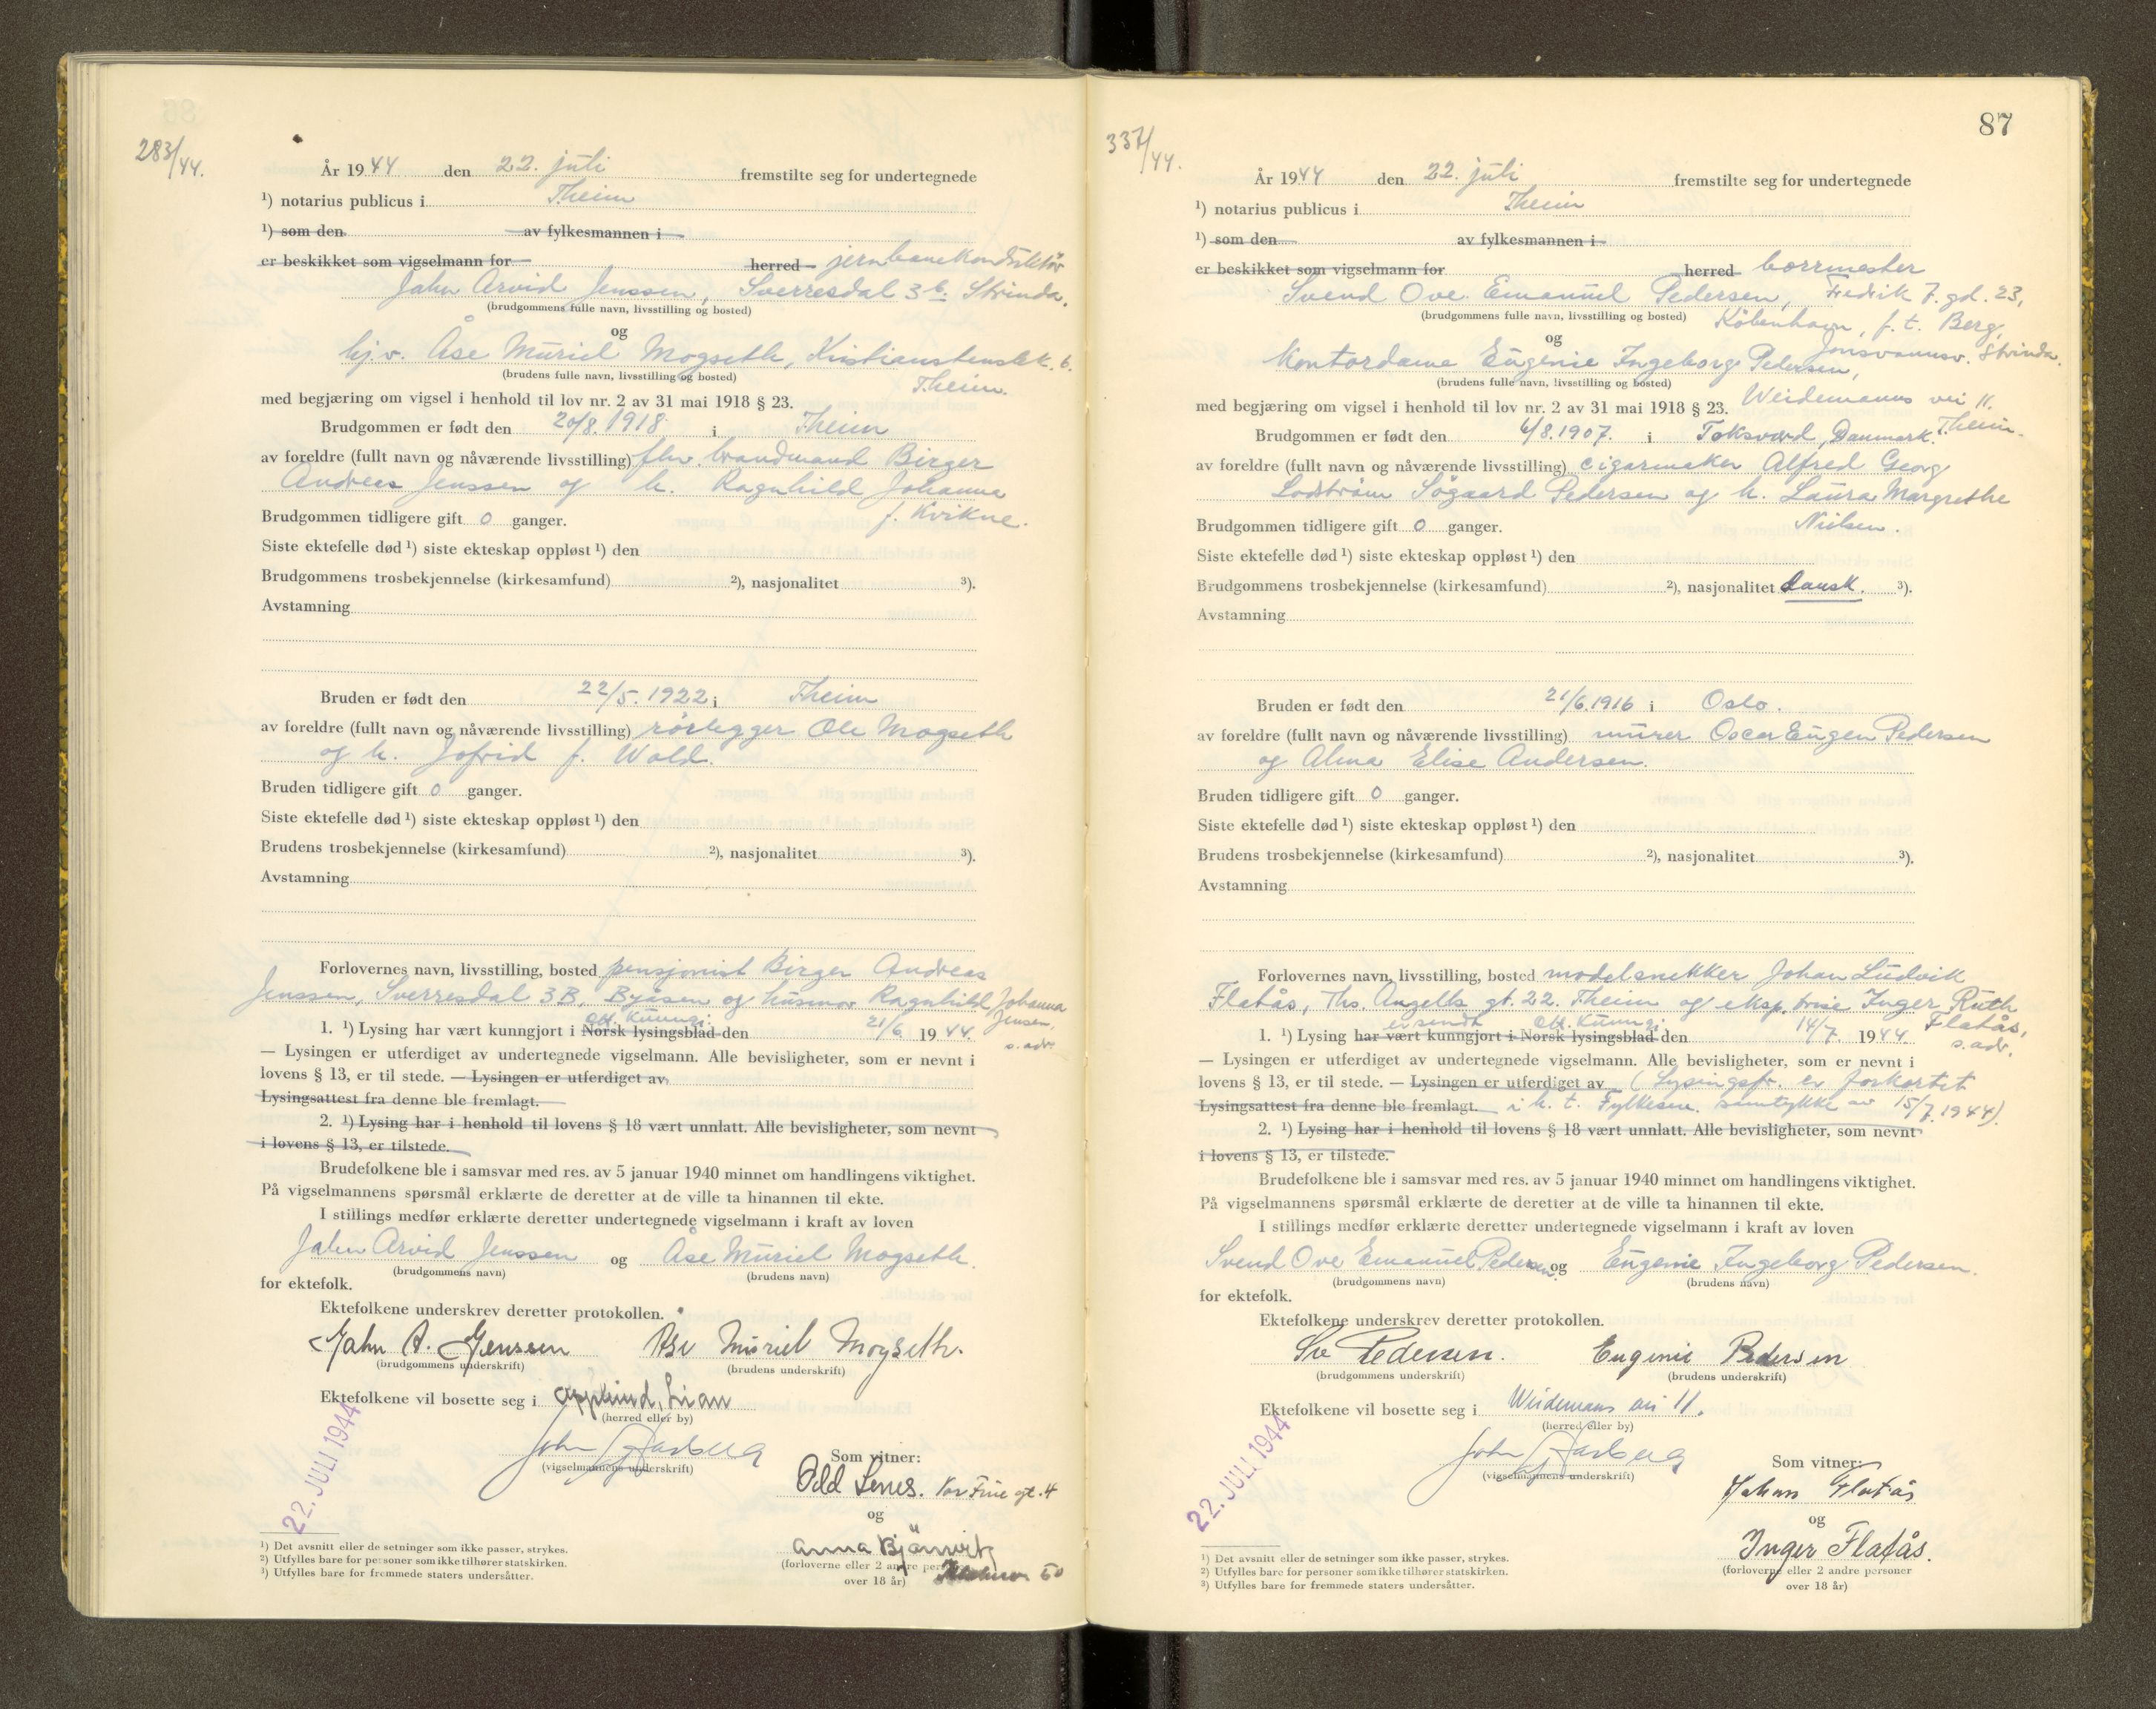 283/44.
År 1944 den 22. juli fremstilte seg for undertegnede
¹) notarius publicus i T.heim
¹) som den av fylkesmannen i
er beskikket som vigselmann for herred jernbanekonduktør
Jahn Arvid Jenssen, Sverresdal 3 b. Strinda.
(brudgommens fulle navn, livsstilling og bosted)
og
hj.v. Åse Muriel Mogseth, Kristianstensbk. 6.
(brudens fulle navn, livsstilling og bosted)
T.heim.
med begjæring om vigsel i henhold til lov nr. 2 av 31 mai 1918 § 23.
Brudgommen er født den 20/8. 1918 i T.heim
av foreldre (fullt navn og nåværende livsstilling) fhv. brandmand Birger
Andreas Jenssen og h. Ragnhild Johanne
f. Kvikne.
Brudgommen tidligere gift 0 ganger.
Siste ektefelle død ¹) siste ekteskap oppløst ¹) den
Brudgommens trosbekjennelse (kirkesamfund) ²), nasjonalitet ³).
Avstamning
Bruden er født den 22/5. 1922 i T.heim
av foreldre (fullt navn og nåværende livsstilling) rørlegger Ole Mogseth
og h. Jofrid f. Wold.
Bruden tidligere gift 0 ganger.
Siste ektefelle død ¹) siste ekteskap oppløst ¹) den
Brudens trosbekjennelse (kirkesamfund) ²), nasjonalitet ³).
Avstamning
Forlovernes navn, livsstilling, bosted pensjonist Birger Andreas
Jenssen, Sverresdal 3B, Byåsen og husmor Ragnhild Johanna
Jensen,
s. adr.
Off. Kunngj.
1. ¹) Lysing har vært kunngjort i Norsk lysingsblad den 21/6 1944.
— Lysingen er utferdiget av undertegnede vigselmann. Alle bevisligheter, som er nevnt i
lovens § 13, er til stede. — Lysingen er utferdiget av
Lysingsattest fra denne ble fremlagt.
2. ¹) Lysing har i henhold til lovens § 18 vært unnlatt. Alle bevisligheter, som nevnt
i lovens § 13, er tilstede.
Brudefolkene ble i samsvar med res. av 5 januar 1940 minnet om handlingens viktighet.
På vigselmannens spørsmål erklærte de deretter at de ville ta hinannen til ekte.
I stillings medfør erklærte deretter undertegnede vigselmann i kraft av loven
Jahn Arvid Jenssen og Åse Muriel Mogseth.
(brudgommens navn) (brudens navn)
for ektefolk.
Ektefolkene underskrev deretter protokollen.
Jahn A. Jenssen Åse Muriel Mogseth.
(brudgommens underskrift) (brudens underskrift)
Ektefolkene vil bosette seg i Lian
(herred eller by)
22. JULI 1944
John
(vigselmannens underskrift)
Som vitner:
Odd gt. 4
og
Anna
(forloverne eller 2 andre personer
over 18 år) 50
¹) Det avsnitt eller de setninger som ikke passer, strykes.
²) Utfylles bare for personer som ikke tilhører statskirken.
¹) Utfylles bare for fremmede staters undersåtter.
87
337/44.
År 1944 den 22. juli fremstilte seg for undertegnede
¹) notarius publicus i T.heim
¹) som den av fylkesmannen i
er beskikket som vigselmann for herred borrmester
Svend Ove Emanuel Pedersen, Fredrik 7. gd. 23,
(brudgommens fulle navn, livsstilling og bosted) København, f. t. Berg,
og Jonsvannsv. Strinda.
Kontordame Eugenie Ingeborg Pedersen,
(brudens fulle navn, livsstilling og bosted)
med begjæring om vigsel i henhold til lov nr. 2 av 31 mai 1918 § 23. Weidemanns vei 11.
T.heim.
Brudgommen er født den 6/8. 1907. i Toksværd, Danmark.
av foreldre (fullt navn og nåværende livsstilling) cigarmaker Alfred Georg
Lodström Sögaard Pedersen og h. Laura Margrethe
Nielsen.
Brudgommen tidligere gift 0 ganger.
Siste ektefelle død ¹) siste ekteskap oppløst ¹) den
Brudgommens trosbekjennelse (kirkesamfund) ²), nasjonalitet dansk. ³).
Avstamning
Bruden er født den 21/6. 1916 i Oslo.
av foreldre (fullt navn og nåværende livsstilling) murer Oscar Eugen Pedersen
og Alma Elise Andersen.
Bruden tidligere gift 0 ganger.
Siste ektefelle død ¹) siste ekteskap oppløst ¹) den
Brudens trosbekjennelse (kirkesamfund) ²), nasjonalitet ³).
Avstamning
Forlovernes navn, livsstilling, bosted modelsnekker Johan Ludvik
Flatås, Ths. Angells gt. 22. T.heim og eksp.trise Inger Ruth
Flatås,
s. adr.
er sendt Off. Kunngj.
1. ¹) Lysing har vært kunngjort i Norsk lysingsblad den 14/7. 1944.
— Lysingen er utferdiget av undertegnede vigselmann. Alle bevisligheter, som er nevnt i
lovens § 13, er til stede. — Lysingen er utferdiget av (Lysingsfr. er forkortet
Lysingsattest fra denne ble fremlagt. i h. t. Fylkesm. samtykke av 15/7. 1944).
2. ¹) Lysing har i henhold til lovens § 18 vært unnlatt. Alle bevisligheter, som nevnt
i lovens § 13, er tilstede.
Brudefolkene ble i samsvar med res. av 5 januar 1940 minnet om handlingens viktighet.
På vigselmannens spørsmål erklærte de deretter at de ville ta hinannen til ekte.
I stillings medfør erklærte deretter undertegnede vigselmann i kraft av loven
Svend Ove Emanuel Pedersen og Eugenie Ingeborg Pedersen.
(brudgommens navn) (brudens navn)
for ektefolk.
Ektefolkene underskrev deretter protokollen.
Pedersen. Eugenie Pedersen
(brudgommens underskrift) (brudens underskrift)
Ektefolkene vil bosette seg i Weidemans vei 11.
(herred eller by)
22. JULI 1944
John
(vigselmannens underskrift)
Som vitner:
Johan Flatås
og
Inger Flatås.
(forloverne eller 2 andre personer
over 18 år)
¹) Det avsnitt eller de setninger som ikke passer, strykes.
²) Utfylles bare for personer som ikke tilhører statskirken.
³) Utfylles bare for fremmede staters undersåtter.